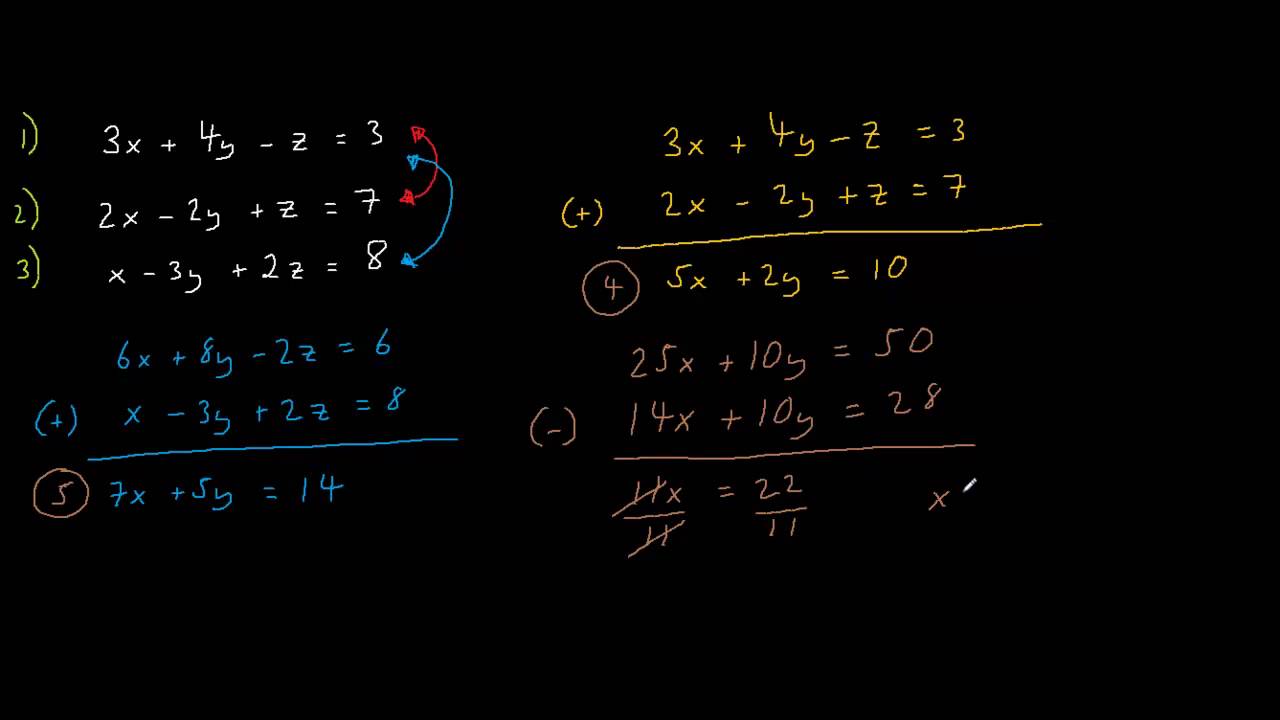 1) 3x + 4y - z = 3
2) 2x - 2y + z = 7
3) x - 3y + 2z = 8
6x + 8y - 2z = 6
(+) x - 3y + 2z = 8
5 7x + 5y = 14
3x + 4y - z = 3
(+) 2x - 2y + z = 7
4 5x + 2y = 10
25x + 10y = 50
(-) 14x + 10y = 28
11x = 22 x
11 11